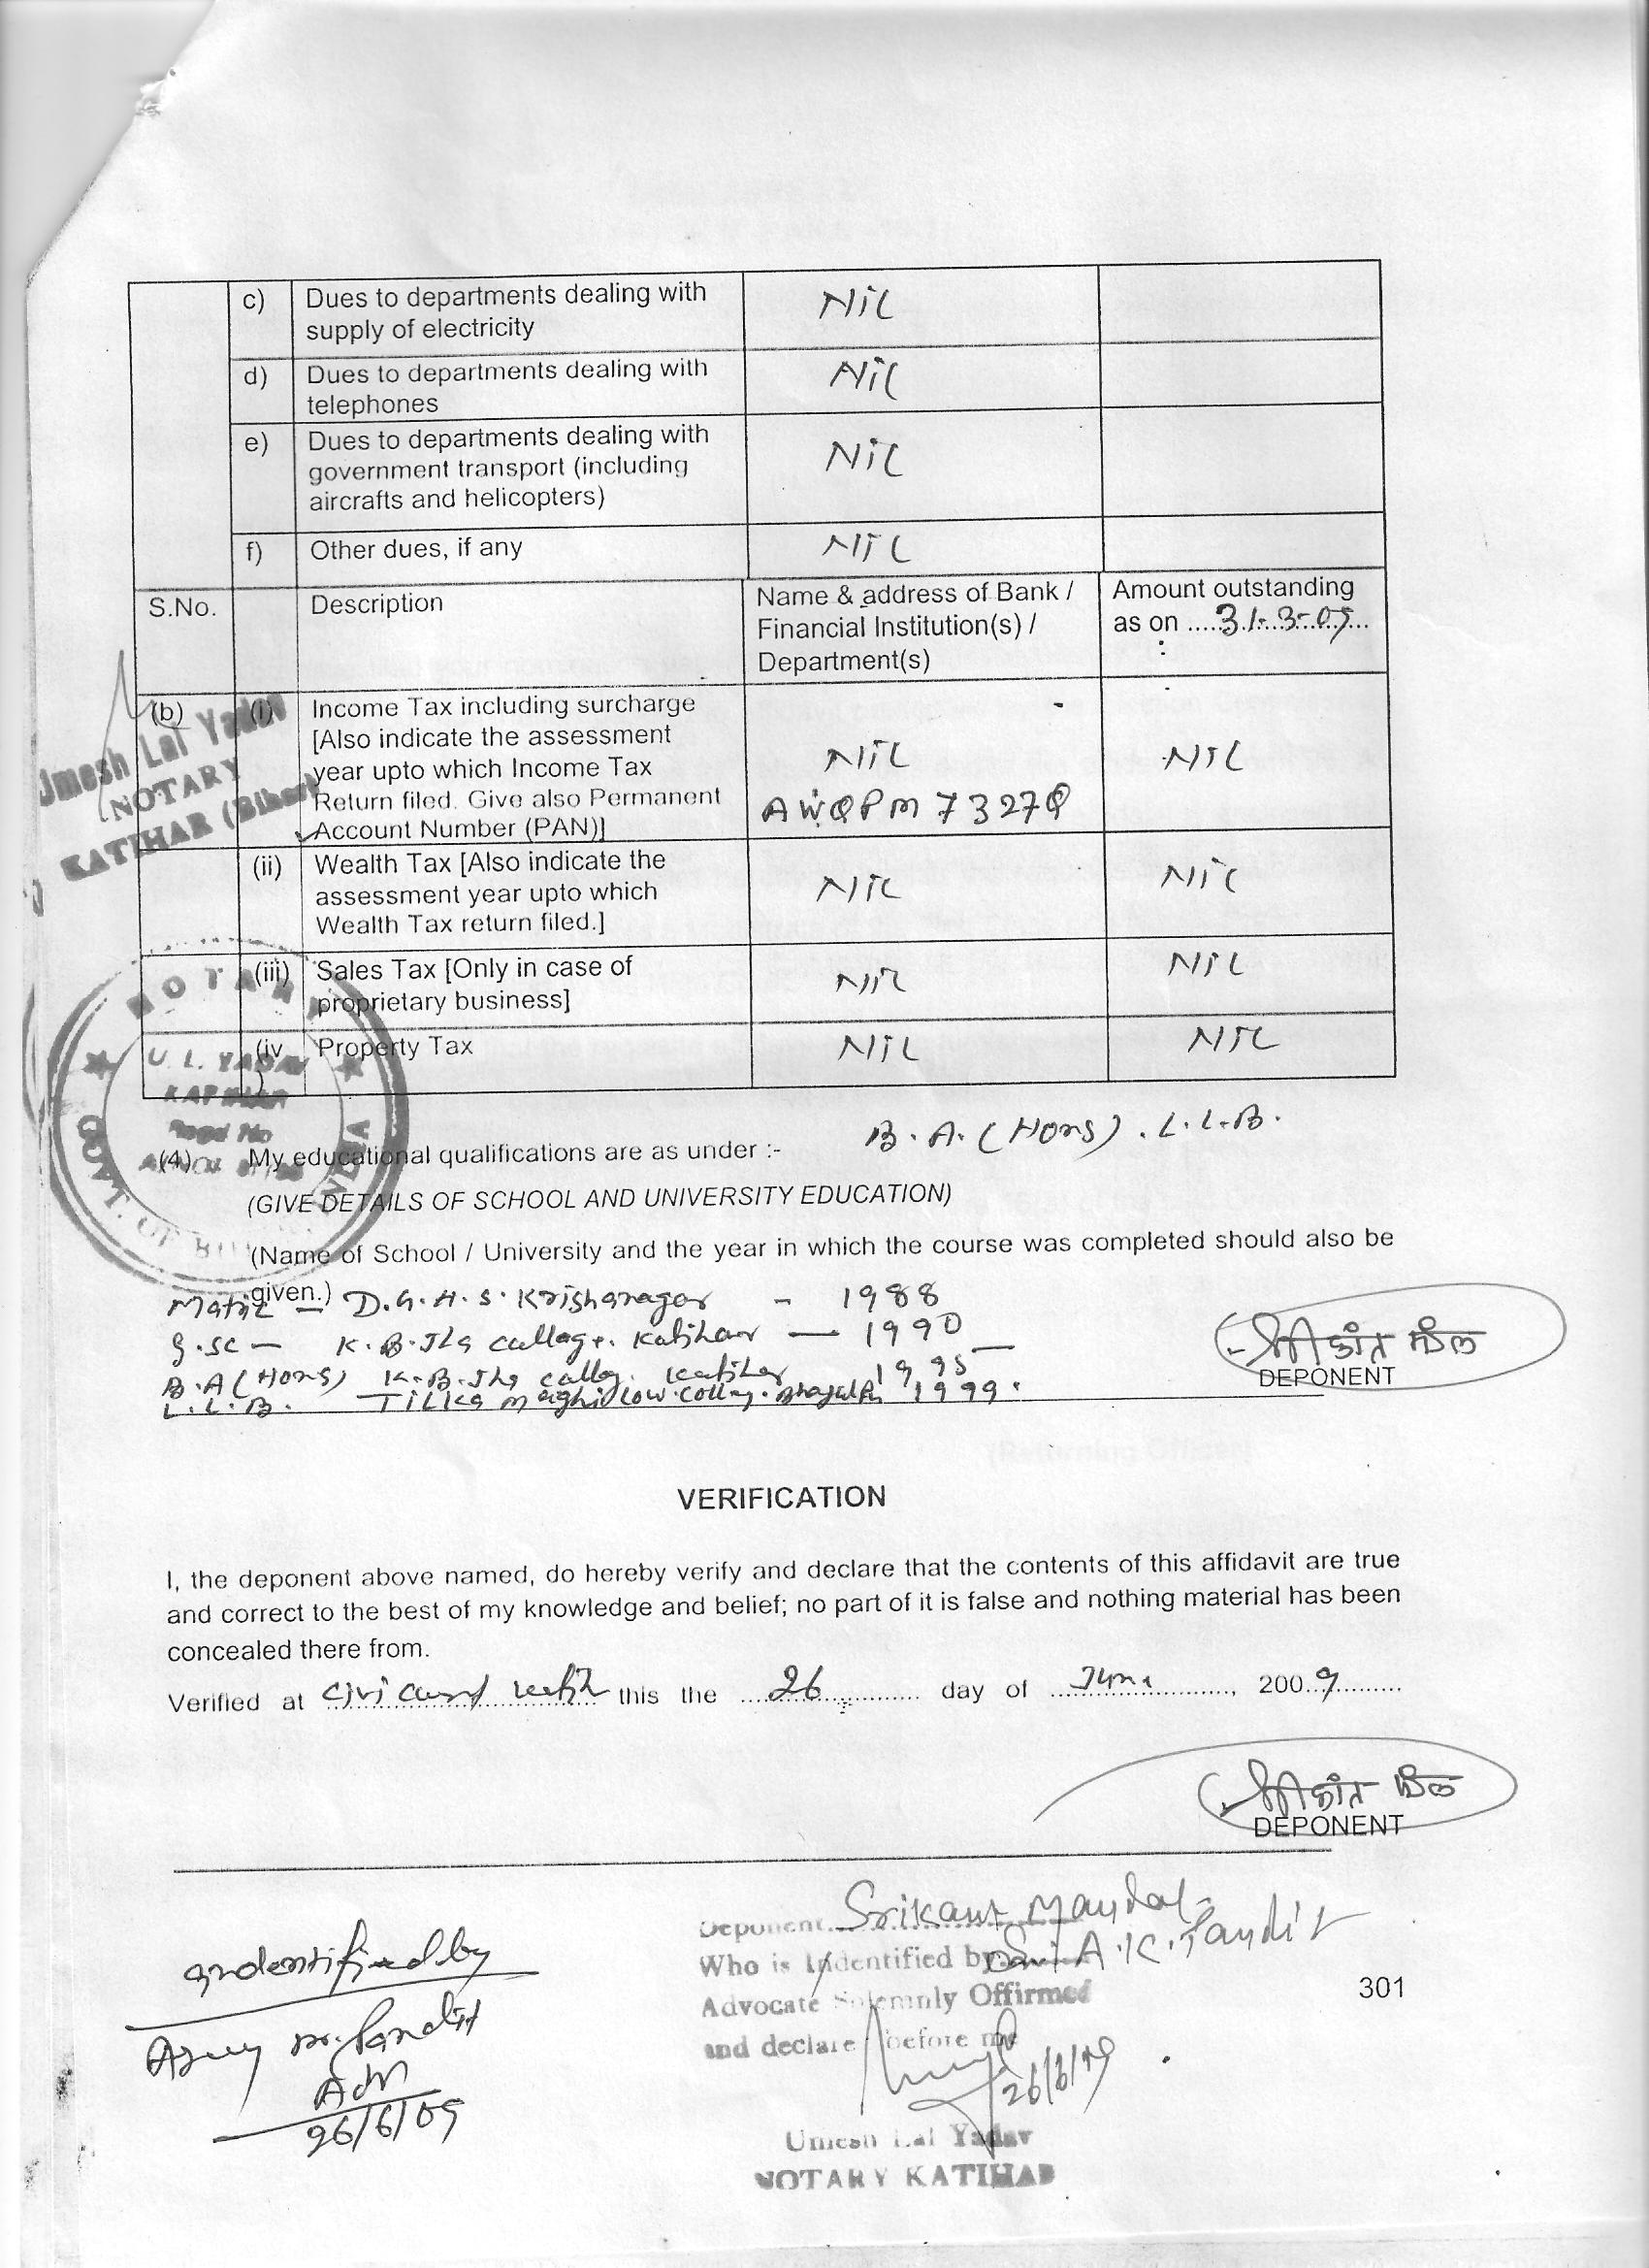 c) Dues to departments dealing with NiL
supply of electricity
d) Dues to departments dealing with NiL
telephones
e) Dues to departments dealing with NiL
government transport (including
aircrafts and helicopters)
f) Other dues, if any NiL
S.No. Description Name & address of Bank / Amount outstanding
Financial Institution(s) / as on ....31-3-09...
Department(s)
(b) (i) Income Tax including surcharge
[Also indicate the assessment
year upto which Income Tax NiL NiL
Return filed. Give also Permanent AWQPM7327Q
Account Number (PAN)]
Umesh Lal Yadav
NOTARY
KATIHAR (Bihar)
(ii) Wealth Tax [Also indicate the NiL NiL
assessment year upto which
Wealth Tax return filed.]
(iii) Sales Tax [Only in case of NiL NiL
proprietary business]
(iv) Property Tax NiL NiL
NOTARY
U. L. YADAV
GOVT. OF INDIA
(4) My educational qualifications are as under :- B.A.(Hons). L.L.B.
(GIVE DETAILS OF SCHOOL AND UNIVERSITY EDUCATION)
(Name of School / University and the year in which the course was completed should also be
given.)
Matric — D.G.H.S. Krishanagar - 1988
I.sc — K.B. Jha collage. Katihar — 1990
B.A(Hons) K.B. Jha colleg. Katihar 1995
L.L.B. TILKa 1999.
श्रीकांत मंडल
DEPONENT
VERIFICATION
I, the deponent above named, do hereby verify and declare that the contents of this affidavit are true
and correct to the best of my knowledge and belief; no part of it is false and nothing material has been
concealed there from.
Verified at this the ....26.... day of ....June...., 200.9....
श्रीकांत मंडल
DEPONENT
Deponent Srikant Mandal
Who is Indentified by Sri A.K. Pandit
Advocate Solemnly Offirmed
and declare before me
26/6/09
Umesh Lal Yadav
NOTARY KATIHAR
Indentified by
Pandit
Adv
26/6/09
301